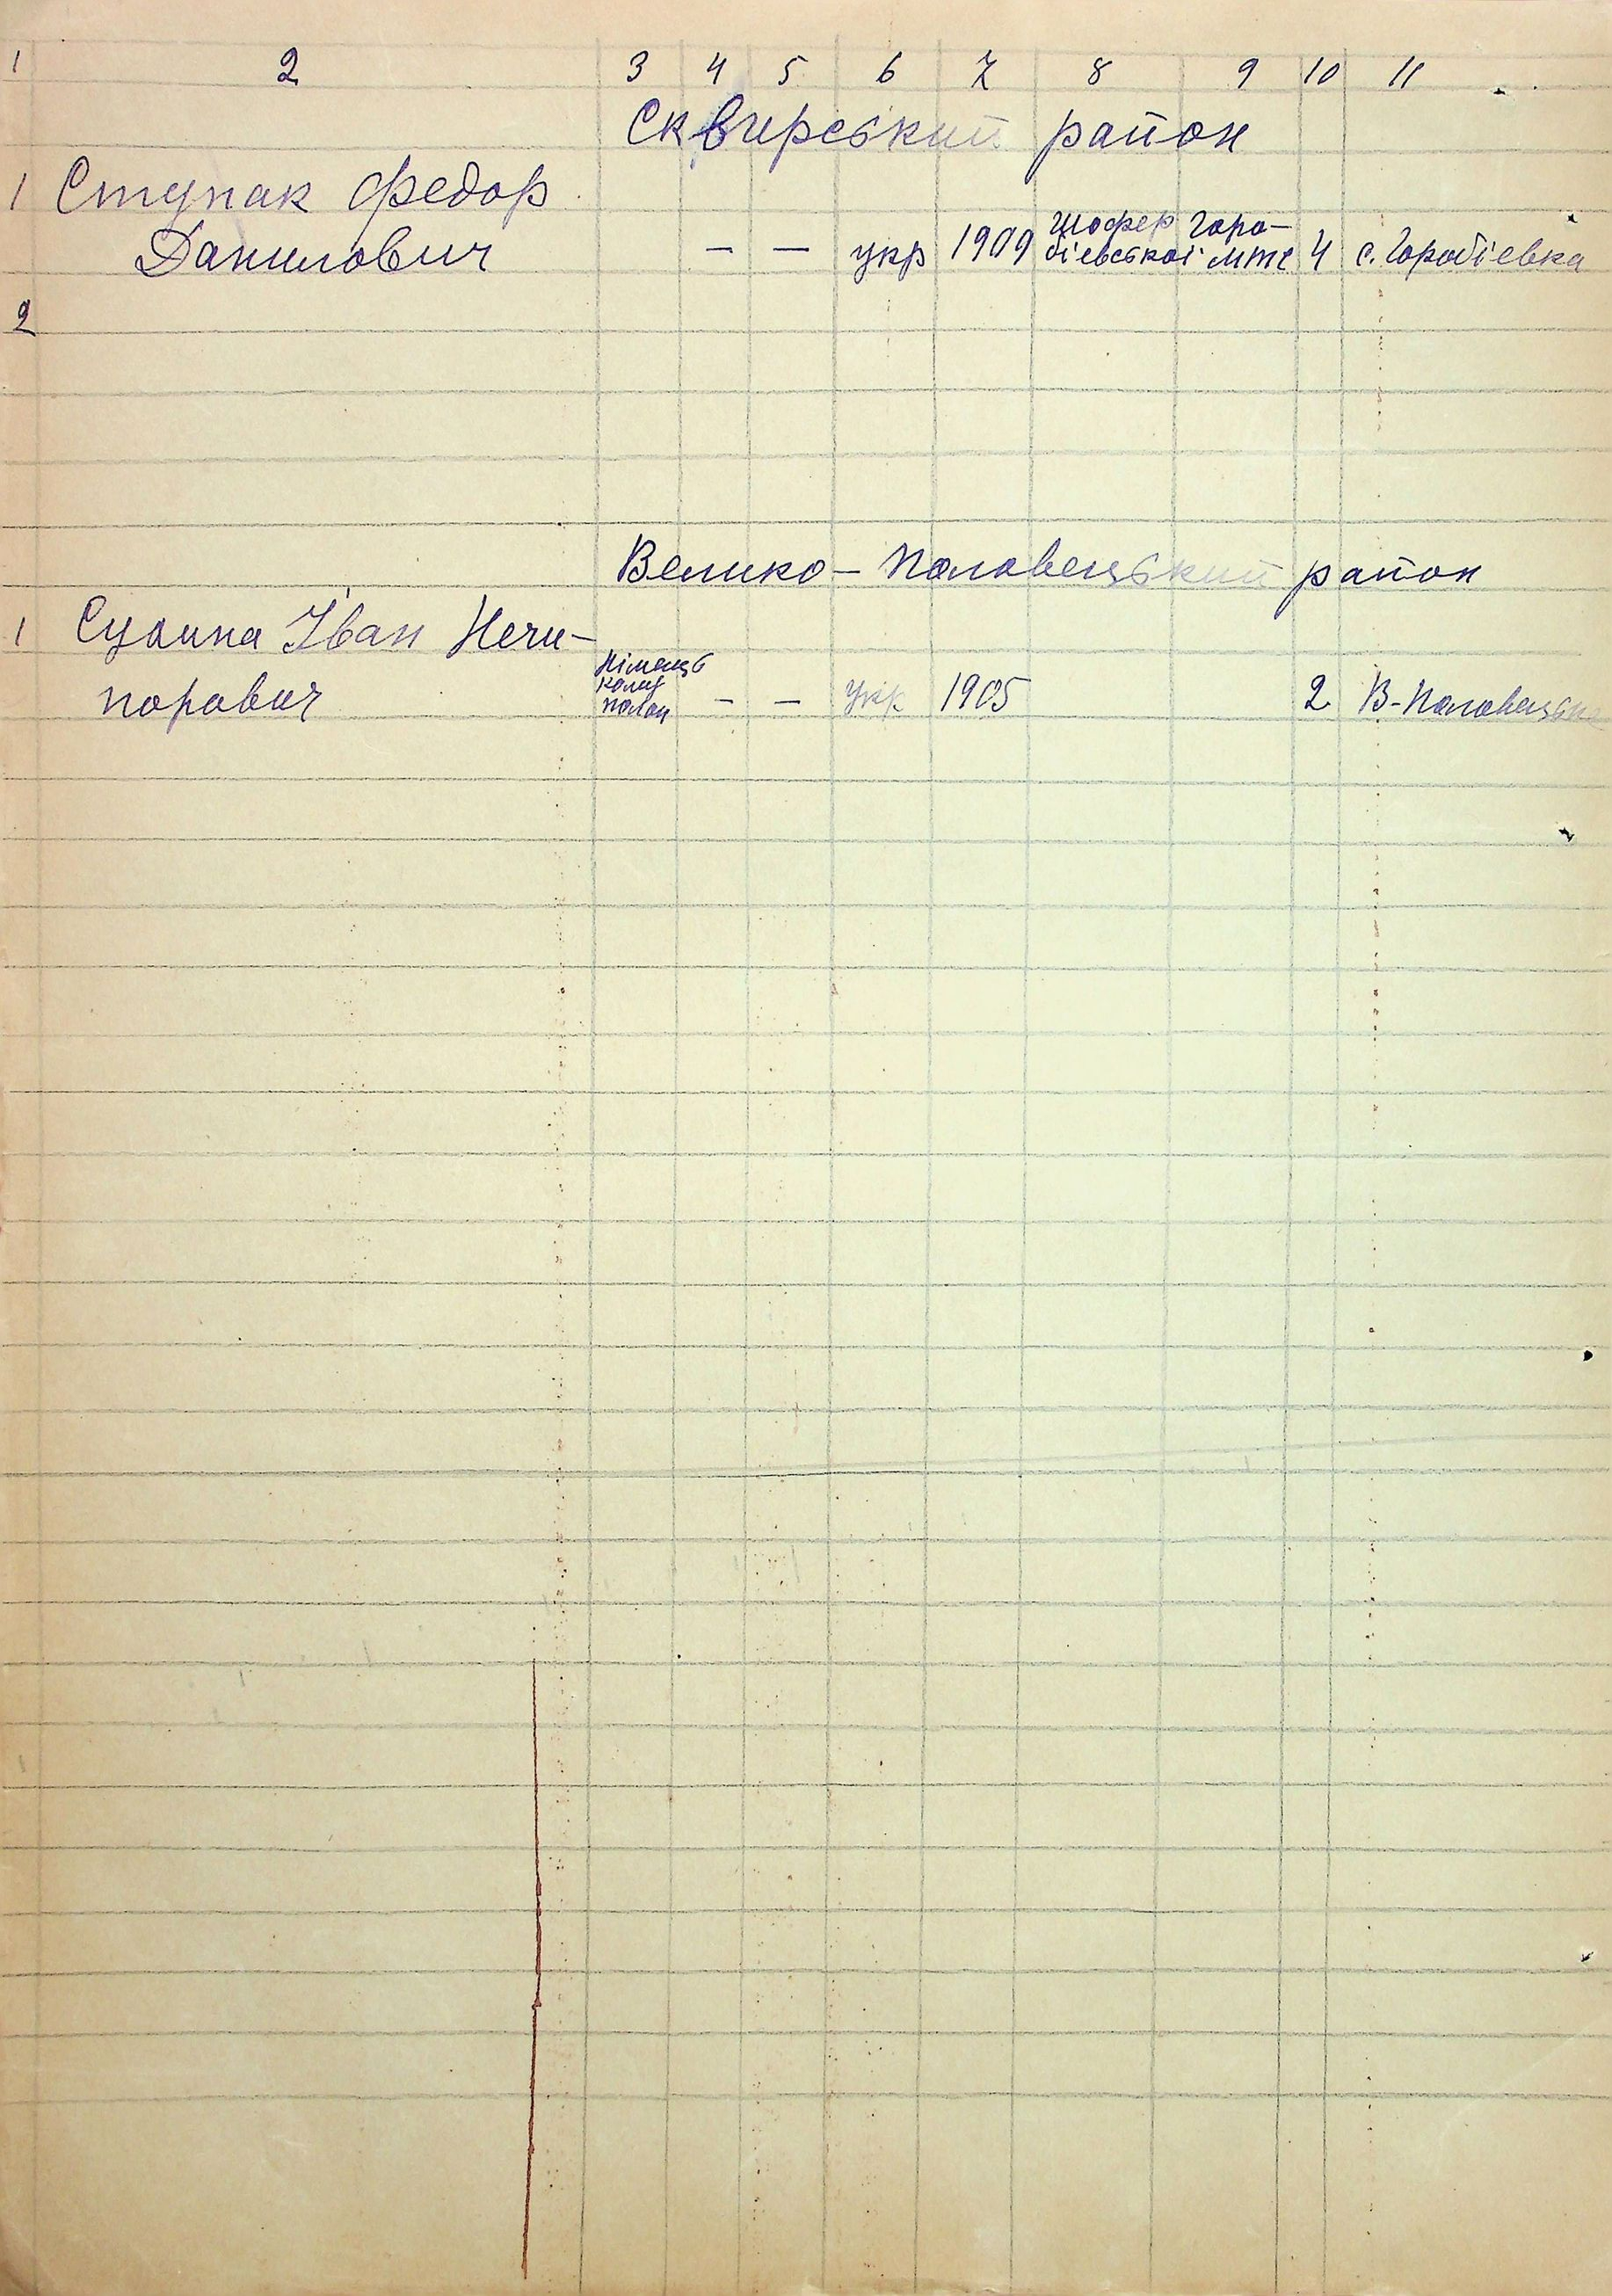 1 2 3 4 5 6 7 8 9 10 11
Сквирський район
1 Ступак Федор
Данилович — — укр 1909 шофер Горо-
біевської МТС 4 с. Горобіевка
2
Велико-Половецький район
1 Іван Нечи-
порович — — укр 1905 2 В-Половецьке